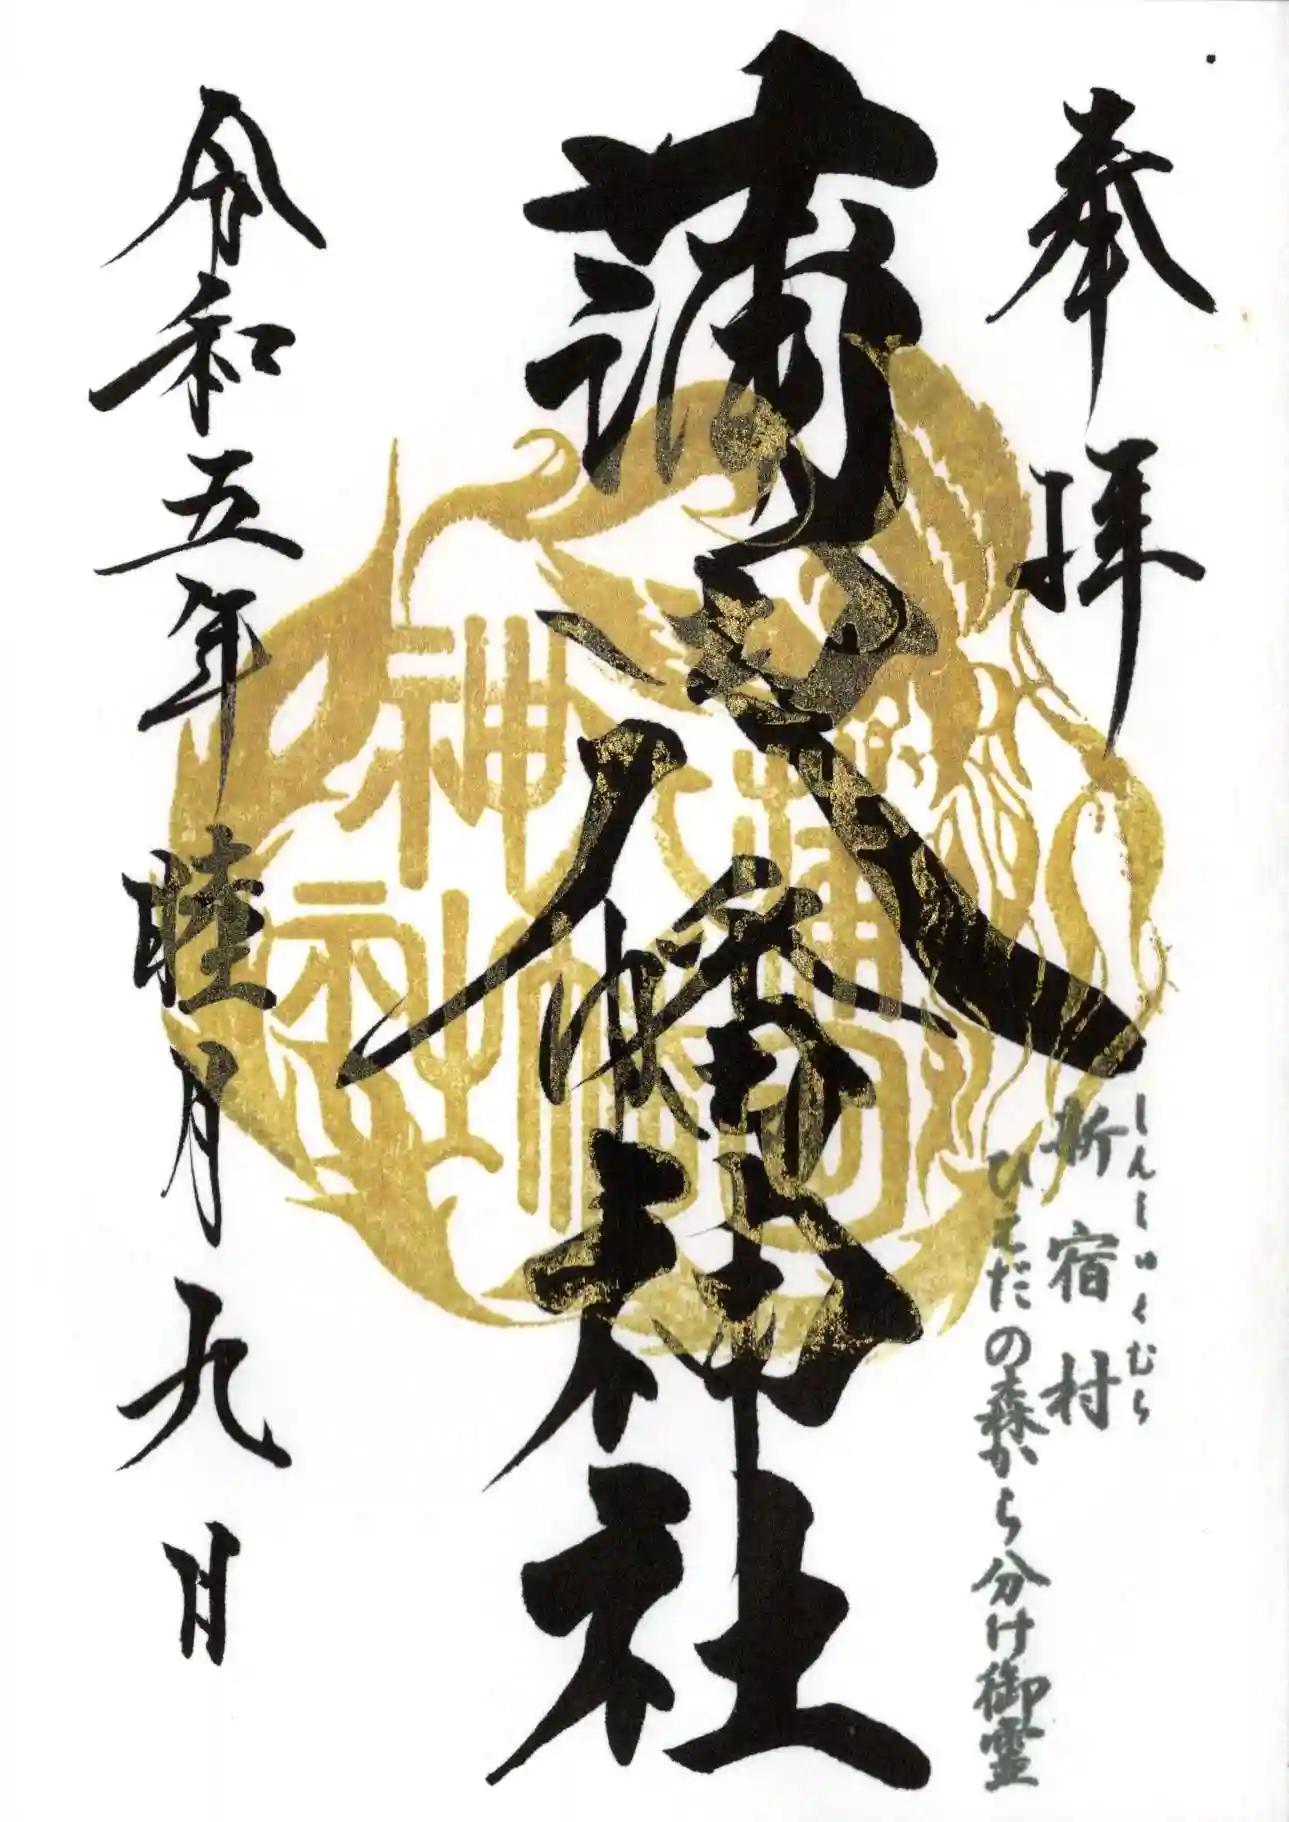 奉拝
しんしゅくむら
新宿村
ひえだの森から分け御霊
蒲田八幡神社
蒲田
八幡
神社
令和五年睦月九日